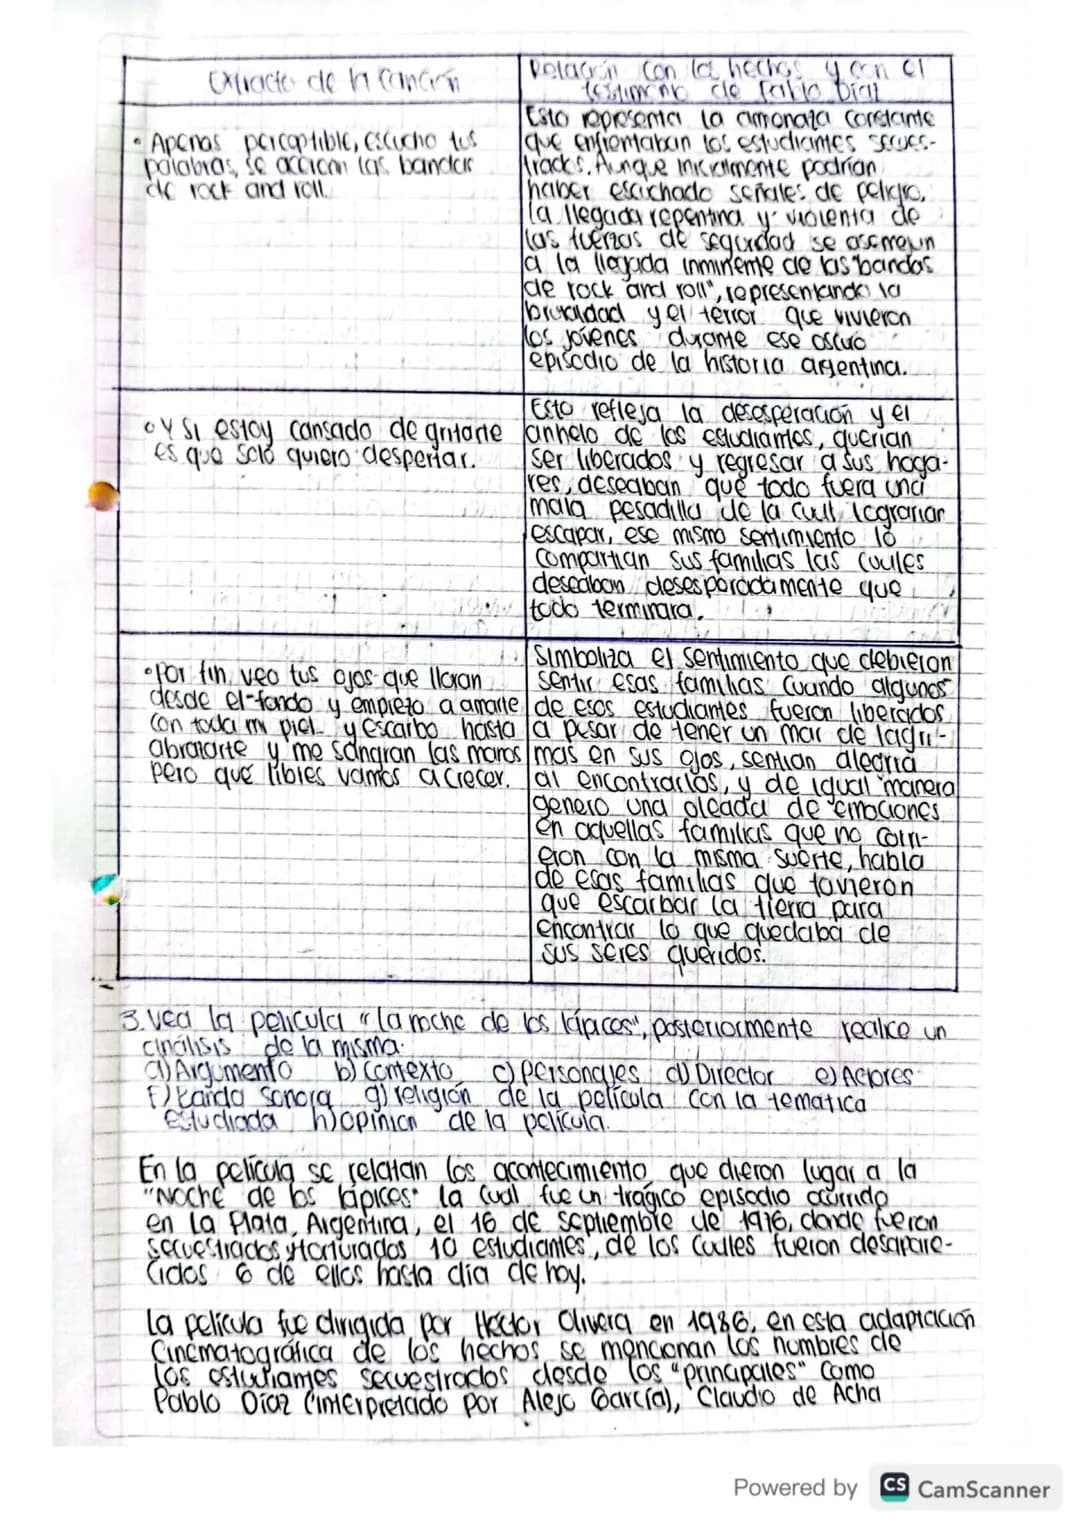 Extracto de la canción
Relación con los hechos y con el
testimonio de Pablo Díaz
• Apenas perceptible, escucho tus
palabras, se acercan las bandas
de rock and roll.
Esto representa la amenaza constante
que enfrentaban los estudiantes secues-
trados. Aunque inicialmente podrían
haber escuchado señales de peligro,
la llegada repentina y violenta de
las fuerzas de seguridad se asemejan
a la llegada inminente de las "bandas
de rock and roll", representando la
brutalidad y el terror que vivieron
los jóvenes durante ese oscuro
episodio de la historia argentina.
• Y si estoy cansado de gritarte
es que solo quiero despertar.
Esto refleja la desesperación y el
anhelo de los estudiantes, querian
ser liberados y regresar a sus hoga-
res, deseaban que todo fuera una
mala pesadilla de la cual lograrian
escapar, ese mismo sentimiento lo
compartian sus familias las cuales
deseaban desesperadamente que
todo terminara.
• Por fin veo tus ojos que lloran
desde el fondo y empiezo a amarte
con toda mi piel y escarbo hasta
abrazarte y me sangran las manos
pero qué libres vamos a crecer.
Simboliza el sentimiento que debieron
sentir esas familias cuando algunos
de esos estudiantes fueron liberados
a pesar de tener un mar de lagri-
mas en sus ojos, sentian alegria
al encontrarlos, y de igual manera
genero una oleada de emociones
en aquellas familias que no corri-
eron con la misma suerte, habla
de esas familias que tuvieron
que escarbar la tierra para
encontrar lo que quedaba de
sus seres queridos.
3. Vea la película "la noche de los lápices", posteriormente realice un
análisis de la misma.
a) Argumento b) contexto c) personajes d) Director e) Actores
f) banda sonora g) religión de la película con la tematica
estudiada h) opinion de la película.
En la película se relatan los acontecimiento que dieron lugar a la
"Noche de los lápices" la cual fue un trágico episodio ocurrido
en La Plata, Argentina, el 16 de septiembre de 1976, donde fueron
secuestrados y torturados 10 estudiantes, de los cuales fueron desapare-
cidos 6 de ellos hasta día de hoy.
La película fue dirigida por Héctor Olivera en 1986, en esta adaptación
cinematográfica de los hechos se mencionan los nombres de
los estudiantes secuestrados desde los "principales" como
Pablo Díaz (interpretado por Alejo García), Claudio de Acha
Powered by CS CamScanner